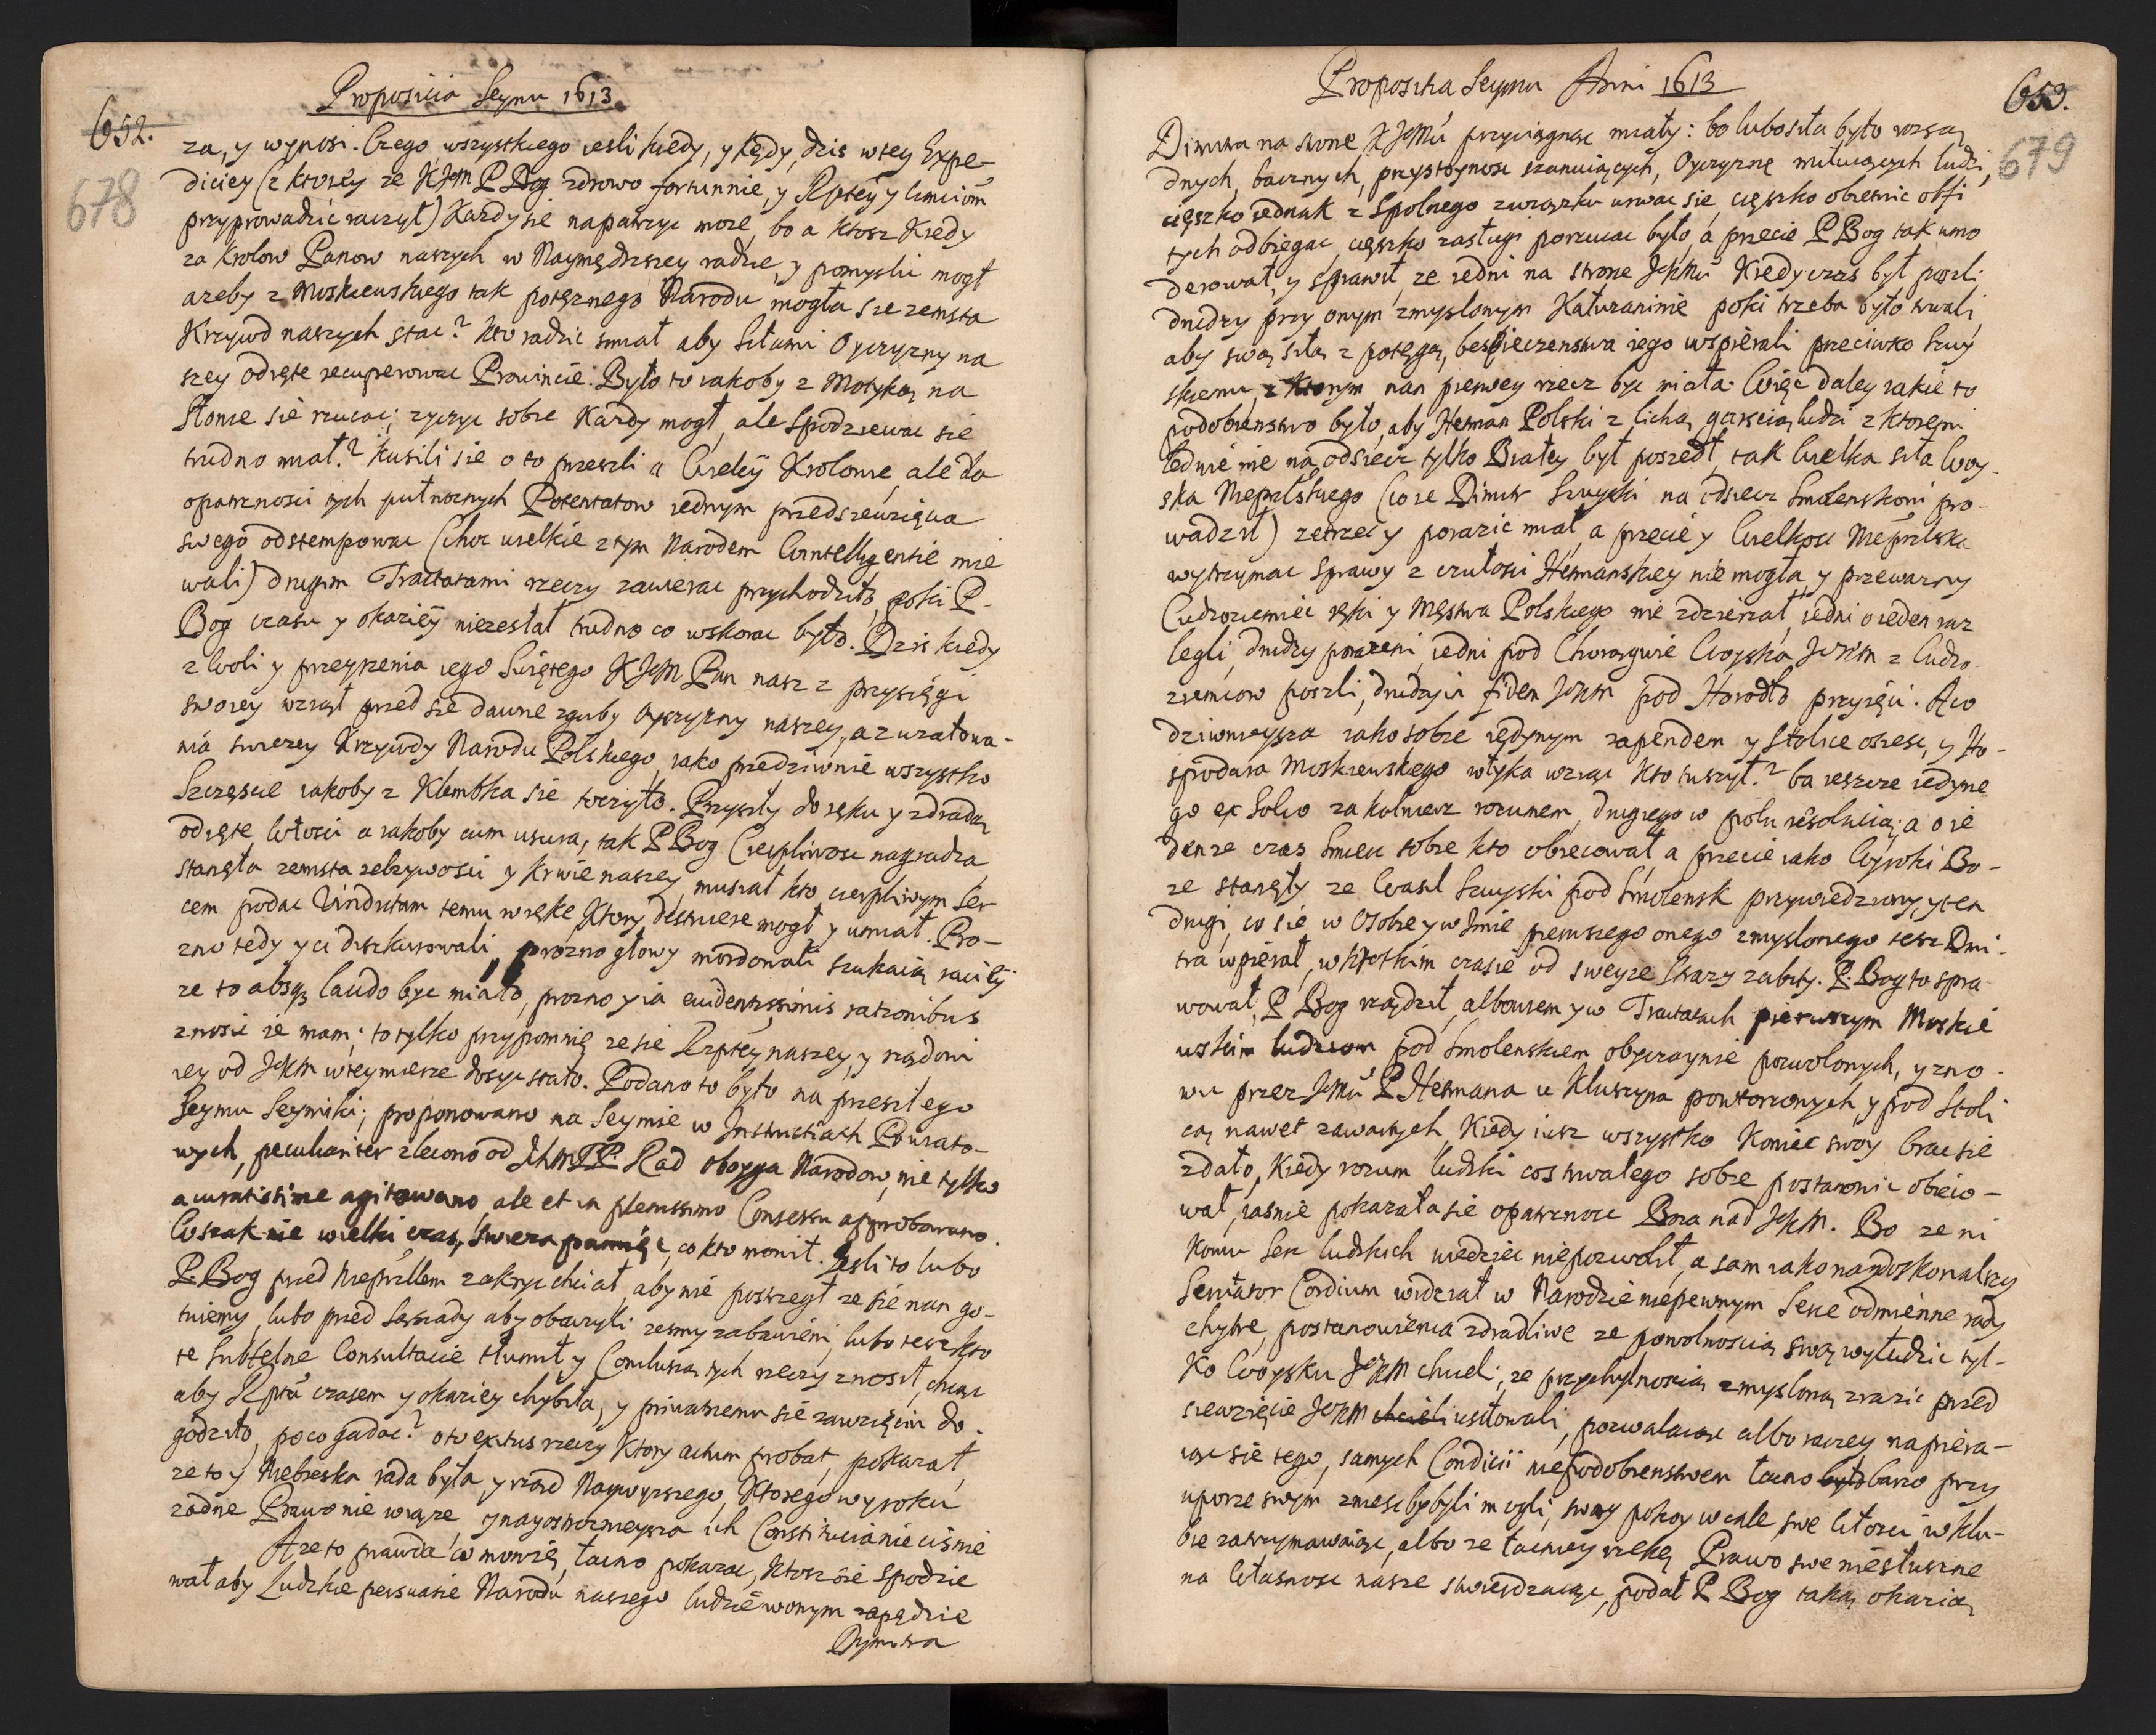 Propositia Seymu 1613
652.
678
za, y wynosi. Czego wszystkiego iesli kiedy, y kędy, dzis w tey Expe-
diciey (z ktorey ze KJM P Bog zdrowo fortunnie, y Rptey y Limciom
przyprowadzić raczył) Kazdy sie napatrzyc moze, bo a ktosz kiedy
za Krolow Panow naszych w Naymędrszey radzie, y pomysli mogł
azeby z Moskiewskiego tak potęznego Narodu mogła sie zemsta
Krzywd naszych stac? kto radzic smiał aby siłami Oyczyzny na
szey odięte recuperowac Prowincie: Było to iakoby z Motyką na
Słonce sie rzucac; zyczyc sobie Kazdy mogł, ale spodziewac sie
trudno miał? kusili sie o to przeszli a Wielcy Krolowie, ale dla
opatrznosci tych pułnocnych Potentatow iednym przedsiewzięcia
swego odstempowac (choc wielkie z tym Narodem Contelligentie mie
wali) drugim Tractatami rzeczy zawierac przychodziło, poki P.
Bog czasu y okaziey niezesłał trudno co wskorac było. Dzis kiedy
z Woli y przeyrzenia iego Swiętego KJM Pan nasz z przysięgi
swoiey wziął przed sie dawne zguby oyczyzny naszey, a z uratowa-
nia swiezey Krzywdy Narodu Polskiego, iako przedziwnie wszystko
Szczęscie iakoby z Klembka sie toczyło. Przyszły do ręku y zdradą
odięte Włosci a iakoby cum usura, tak P Bog Cierpliwosc nagradza
stanęła zemsta zelzywosci y krwie naszey, musiał kto cierpliwym ser
cem podac Vindictam temu w rękę, ktory destruere mogł y umiał. Pro-
zno tedy y ci diszkurowali, prozno głowy mordowali szukaią raciÿ
ze to absq laudo byc miało, prozno y ia euidentissimis rationibus
znosic ie mam; to tylko przypomnię ze sie Rzptey naszey, y rządowi
iey od JKM w tey mierze dosyc stało. Podano to było na przeszłego
Seymu Seymiki; proponowano na Seymie w Instructiach Powiato-
wych, peculiariter zlecono od IchM PP Rad oboyga Narodow, nie tylko
accuratissime agitowano, ale et in plenissimo Consessu approbowano.
Wszak nie wielki czas, swieza pamięc, co kto mowił. Jesli to lubo
P. Bog przed Nieprzÿllem zakryc chciał, aby nie postrzegł ze sie nan go-
tuiemy, lubo przed Sąsiady aby obaczyli zesmy zabawieni, lubo tesz kto
te subtelne Consultacie tłumił y Conclusia tych rzeczy znosił, chcąc
aby Rptă czasem y okaziey chybiła, y priuatnemu sie zawzięciu do-
godziło, po co gadac? oto exitus rzeczy ktory actum probat, pokazał,
ze to y Niebieska rada była, y rząd Naywyszszego, ktorego wyroku
zadne Prawo nie wiąze, y nayostroznieysza ich Constitucia nie cisnie
A ze to prawda co mowię, łacno pokazac, Ktosz sie spodzie
wał aby Ludzkie persuasie Narodu naszego ludzie w onym zapędzie
Dymitra
Propositia Seymu Anni 1613
653.
679
Dimitra na stronę KJeMci przyciągnąc miały: bo lubo siła było rozsą
dnych, bacznych, przystoynosc szanuiących, Oyczyznę miłuiących ludzi,
cięszko iednak z Spolnego związku urwac się, cięszko obietnic obfi
tych odbiegac, cięszko zasługi porzucac było, a przecie P Bog tak umo
derował, y sprawił, ze iedni na stronę JKMci kiedy czas był poszli,
drudzy przy onym zmyslonym Katuraninie poki trzeba było trwali,
aby swą siłą z potęgą, bespieczenstwa iego wspierali przeciwko Szuy
skiemu, z ktorym nan pierwey rzecz byc miała. Więc daley iakie to
podobienstwo było, aby Hetman Polski z lichą garscią ludzi z ktoremi
ledwie nie na odsiecz tylko Białey był poszedł, tak wielka siła Woy-
ska Nieprzlskiego (co ie Dimitr Szuyski na odsiecz Smolenskowi pro-
wadził) zetrzec y porazic miał, a przecie y Wielkosc Nieprzlska
wytrzymac sprawy z czułosci Hetmanskiey nie mogła, y przewazny
Cudzoziemiec ręki y męstwa Polskiego nie zdzierzał, iedni o ieden raz
legli, drudzy porazeni, iedni pod Chorągwie Woyska JKM z Cudzo
ziemcow poszli, drudzy in fidem JKM pod Horodło przyięci. A co
dziwnieysza iako sobie iędynym zapendem y Stolice osiesc, y Ho-
spodara Moskiewskiego wtyka wziąc kto tuszył? ba ieszcze iedyne
go ex Solio za kołnierz rozumem, drugiego w polu resolucią; a o ie
denze czas smiec sobie kto obiecował, a przecie iako Wyroki Bo-
ze stanęły ze Wasil Szuyski pod Smolensk przywiedziony, y ten
drugi, co sie w Osobę y w Imie pierwszego onego zmyslonego tesz Dmi-
tra wpierał, w krotkim czasie od sweyze Strazy zabity. P. Bog to spra-
wował, P Bog rządził, albowiem y w Tractatach pierwszym Moskie
wskim ludziom pod Smolenskiem obyczaynie pozwolonych, y zno-
wu przez JMci P. Hetmana u Kluszyna powtorzonych, y pod Stoli
cą nawet zawartych, kiedy iusz wszystko koniec swoy brac sie
zdało, kiedy rozum ludzki cos trwałego sobie postanowic obieco-
wał, iasnie pokazała sie opatrznosc Boza nad JKM. Bo ze ni
komu serc ludzkich wiedziec niepozwolił, a sam iako naydoskonalszy
Scrutator Cordium widział w Narodzie niepewnym serce odmienne rady
chytre, postanowienia zdradliwe ze powolnoscią swą wyłudzic tyl-
ko Woysku JKM chcieli; ze przychylnoscią zmysloną zrazic przed
siewzięcie JKM chcieli usiłowali, pozwalaiąc albo raczey napiera-
iąc sie tego, samych Condicii niepodobienstwem łacno było barzo przy
uporze swym zniesc by byli mogli, swoy pokoy w cale, swe Włosci w klu-
bie zatrzymawaiąc, albo ze łacniey rzekę Prawo swe niesłuszne
na własnosc nasze stwierdzaiąc, podał P Bog taką okazią